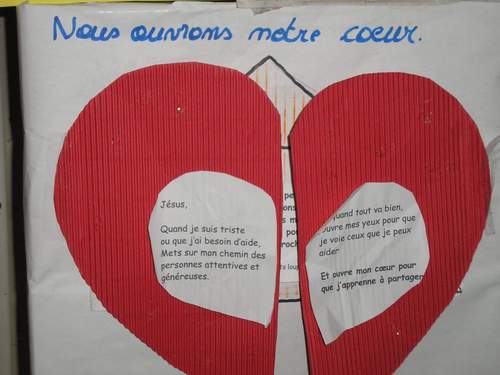 Nous ouvrons notre coeur.
Jésus,
Quand je suis triste
ou que j'ai besoin d'aide,
Mets sur mon chemin des
personnes attentives et
généreuses.
quand tout va bien,
ouvre mes yeux pour que
je voie ceux que je peux
aider
Et ouvre mon cœur pour
que j'apprenne à partager